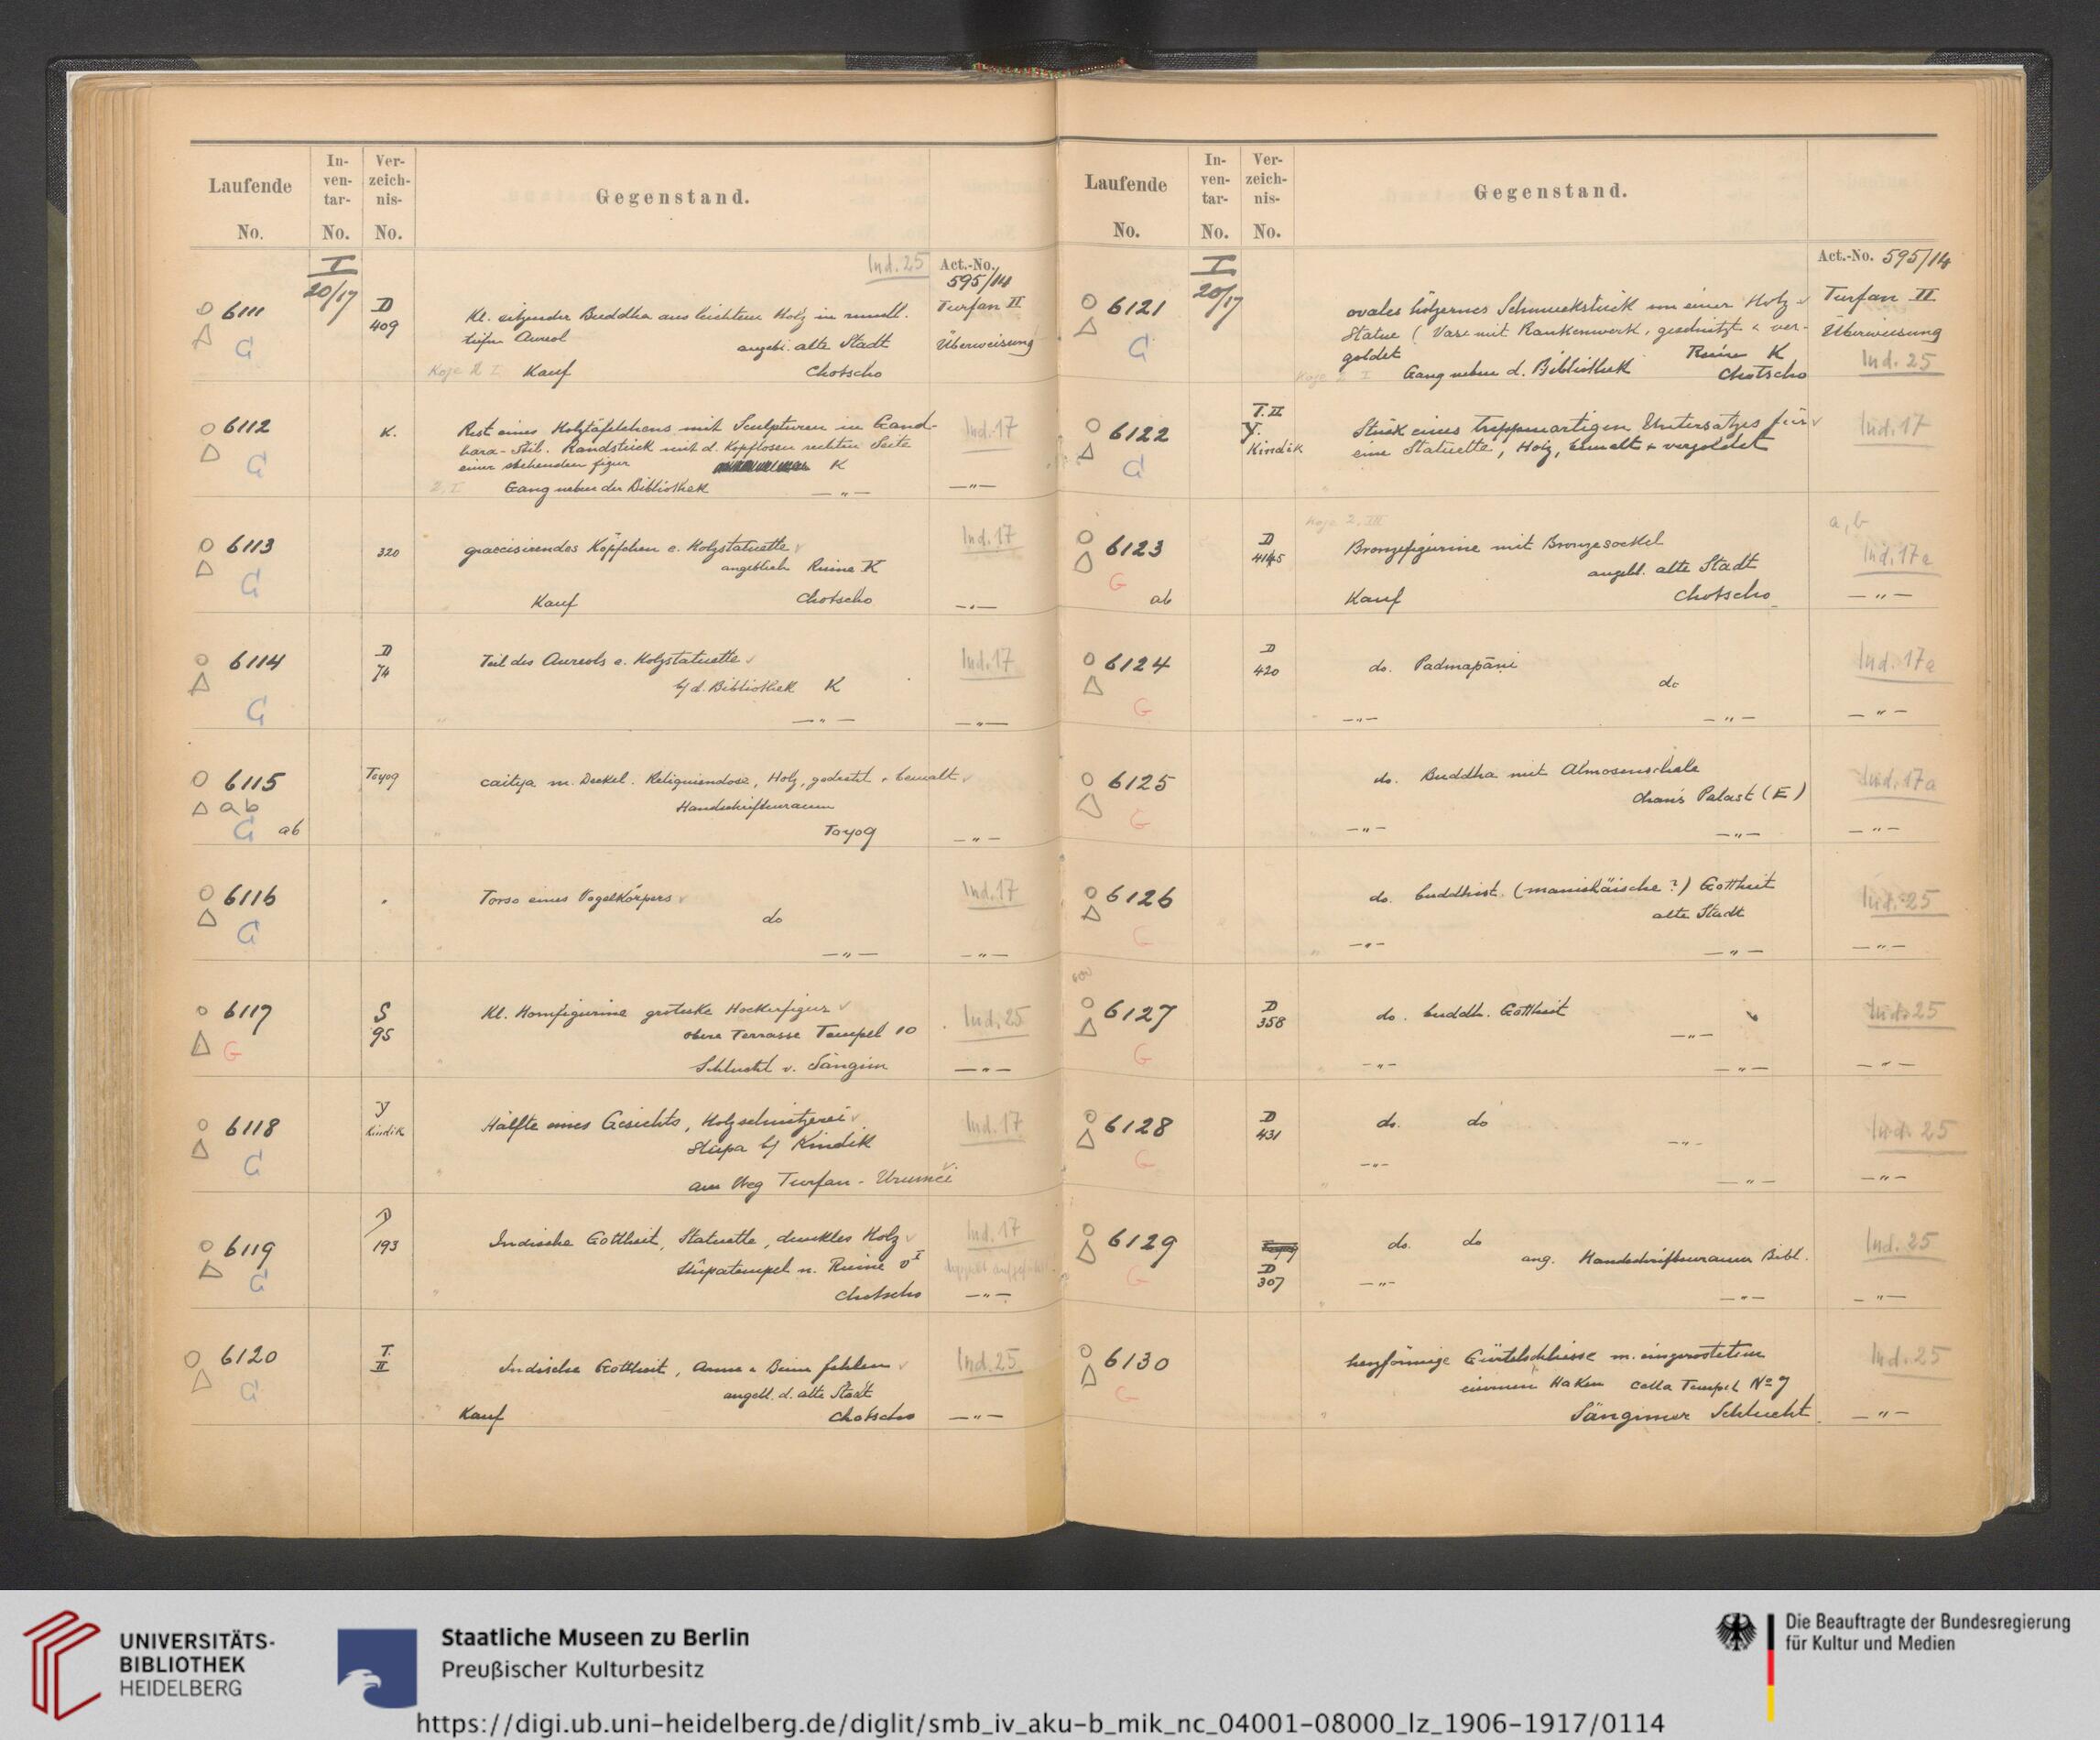 Laufende
No.
In-
ven-
tar-
No.
Ver-
zeich-
nis-
No.
Gegenstand.
I
20/17
Ind. 25
Act.-No.
595/14
6111
G
D
409
Kl. sitzender Buddha aus leichtem Holz in mandl.
tiefem Aureol
angebl. alte Stadt
Koje 2 I Kauf
Chotscho
Turfan II
Überweisung
6112
G
K.
Rest eines Holztäfelchens mit Sculpturen im Gand-
hara-Stil. Randstück mit d. Kopflosen rechten Seite
einer stehenden Figur
K
2, I
Gang neben der Bibliothek
— " —
Ind. 17
— " —
6113
G
320
graecisirendes Köpfchen e. Holzstatuette
angeblich Ruine K
Kauf
Chotscho
Ind. 17
— " —
6114
G
D
74
Teil des Aureols e. Holzstatuette
b/ d. Bibliothek K
— " —
Ind. 17
— " —
6115
ab
G ab
Toyog
caitya m. Deckel. Reliquiendose, Holz, gedreht + bemalt
Handschriftenraum
Toyog
— " —
6116
G
Torso eines Vogelkörpers
do
— " —
Ind. 17
— " —
6117
G
S
95
Kl. Hornfigurine groteske Hockerfigur
obere Terrasse Tempel 10
Schlucht v. Sängim
Ind. 25
— " —
6118
G
Y
Kindik
Hälfte eines Gesichts, Holzschnitzerei
Stupa b/ Kindik
am Weg Turfan - Urumči
Ind. 17
6119
G
D
193
Indische Gottheit, Statuette, dunkles Holz
Stūpatempel n. Ruine
Chotscho
Ind. 17
doppelt aufgeführt
— " —
6120
G
T.
II
Indische Gottheit, Arme & Beine fehlen
angebl. d. alte Stadt
Kauf
Chotscho
Ind. 25
— " —
Laufende
No.
In-
ven-
tar-
No.
Ver-
zeich-
nis-
No.
Gegenstand.
I
20/17
Act.-No. 595/14
6121
G
ovales hölzernes Schmuckstück von einer Holz-
Statue (Vase mit Rankenwerk, geschnitzt & ver-
goldet
Ruine K
Koje 2 I Gang neben d. Bibliothek
Chotscho
Turfan II
Überweisung
Ind. 25
6122
G
T. II
Y.
Kindik
Stück eines treppenartigen Untersatzes für
eine Statuette, Holz, bemalt + vergoldet
Ind. 17
6123
G
ab
D
Koje 2, III
Bronzefigurine mit Bronzesockel
angebl. alte Stadt
Kauf
Chotscho
a, b
Ind. 17a
— " —
6124
G
D
420
do. Padmapāni
do
— " —
— " —
Ind. 17a
— " —
6125
G
do. Buddha mit Almosenschale
Chan's Palast (E)
— " —
— " —
Ind. 17a
— " —
6126
G
do. buddhist. (manichäische?) Gottheit
alte Stadt
— " —
— " —
Ind. 25
— " —
6127
G
D
358
do. buddh. Gottheit
— " —
— " —
— " —
Ind. 25
— " —
6128
G
D
431
do. do
— " —
— " —
— " —
Ind. 25
— " —
6129
G
D
307
do. do
ang. Handschriftenraum Bibl.
— " —
— " —
Ind. 25
— " —
6130
G
herzförmige Gürtelschliesse m. eingerostetem
eisernen Haken Cella Tempel No 7
Sängimer Schlucht
Ind. 25
— " —
UNIVERSITÄTS-
BIBLIOTHEK
HEIDELBERG
Staatliche Museen zu Berlin
Preußischer Kulturbesitz
Die Beauftragte der Bundesregierung
für Kultur und Medien
https://digi.ub.uni-heidelberg.de/diglit/smb_iv_aku-b_mik_nc_04001-08000_lz_1906-1917/0114